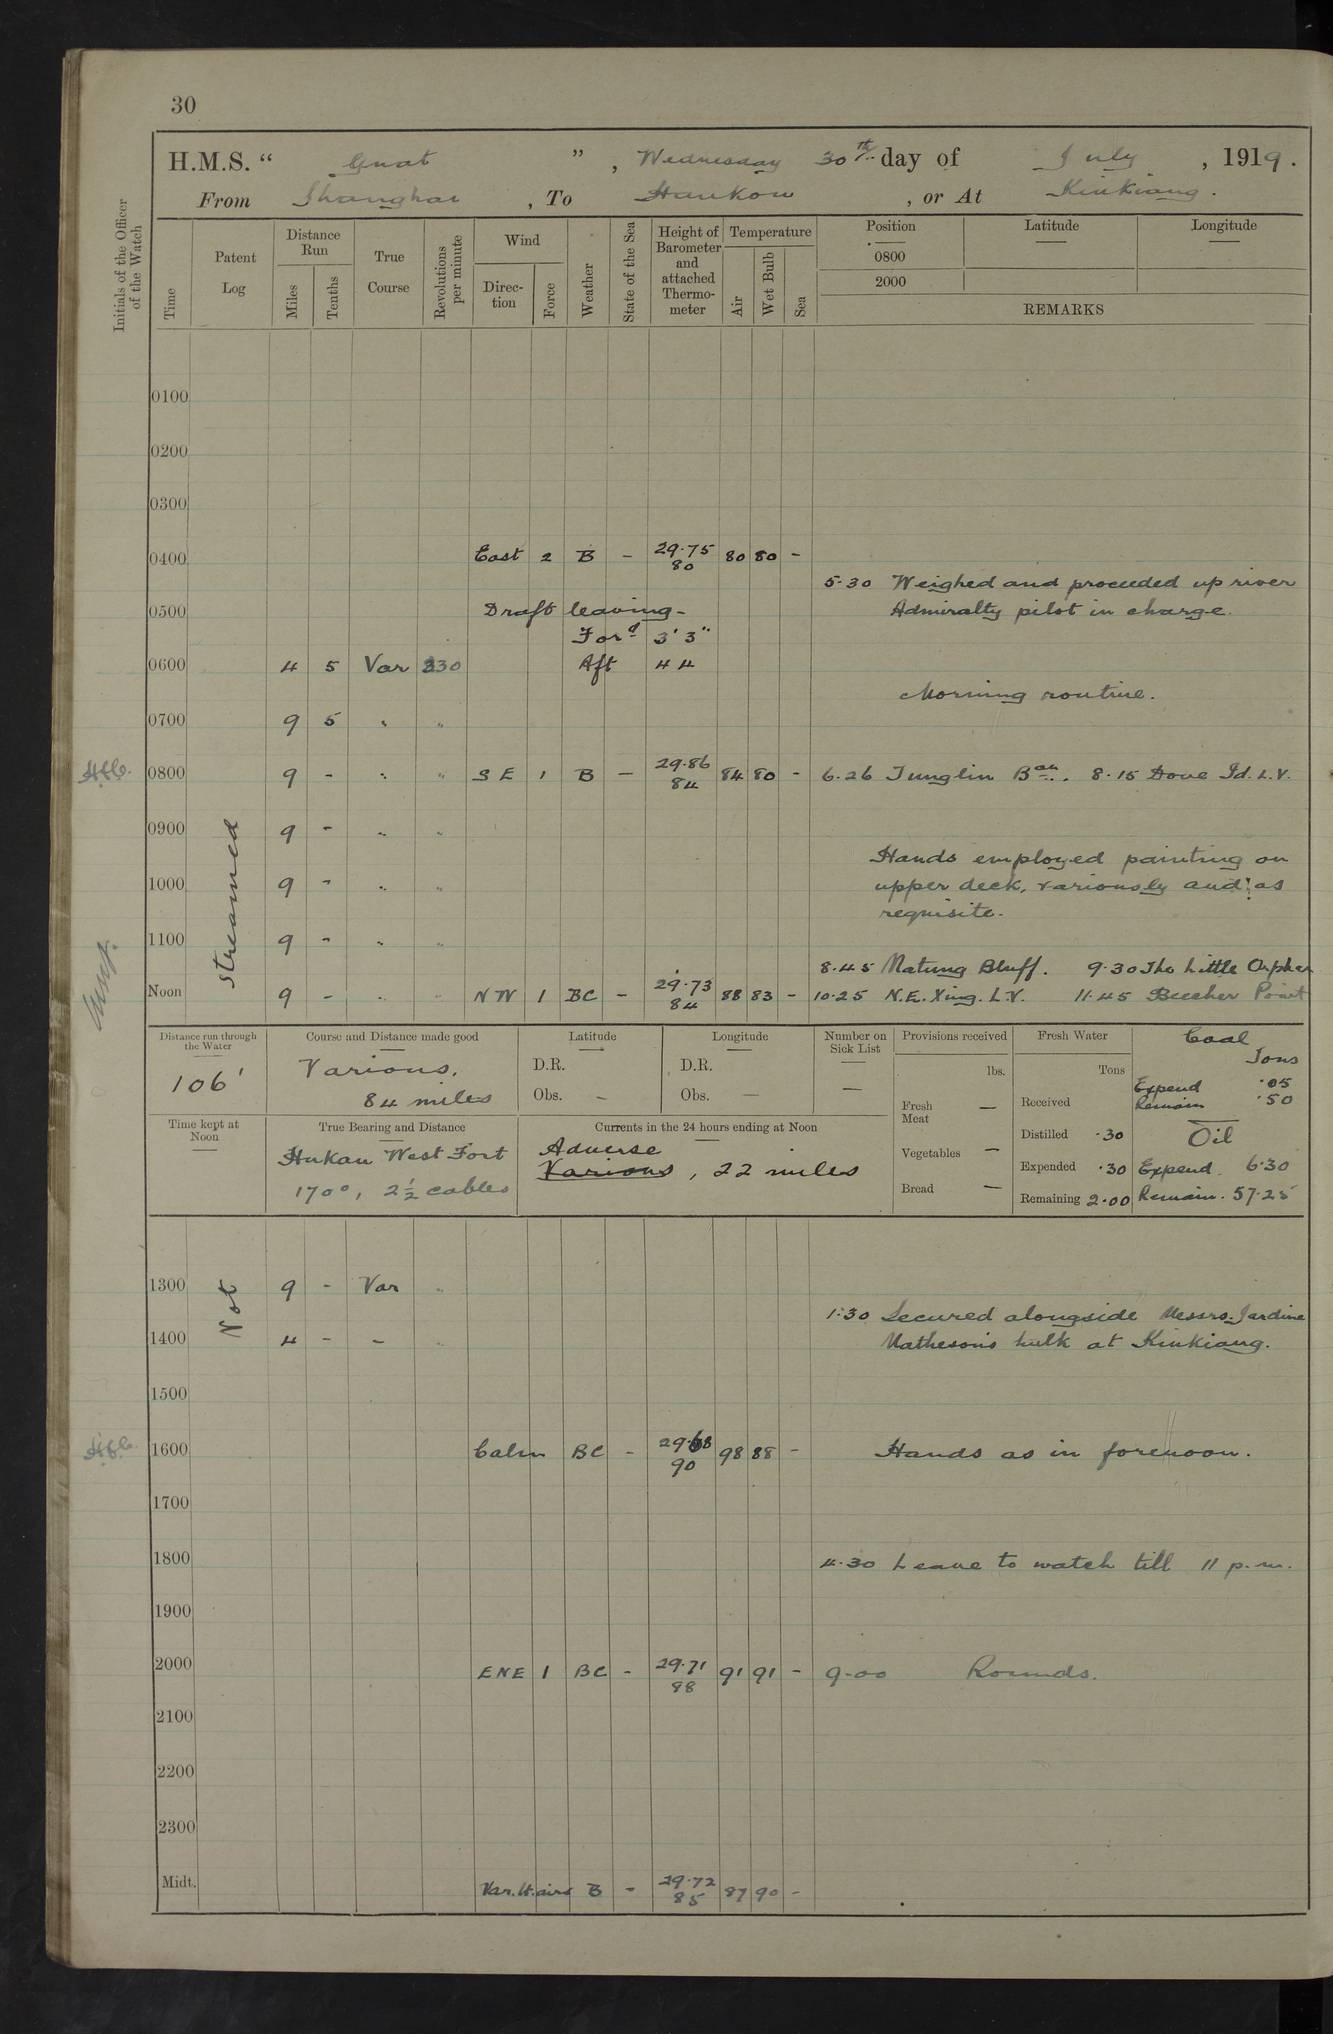 30
H.M.S. “ Gnat ” , Wednesday 30th day of July , 1919.
From Shanghai , To Hankow , or At Kiukiang.
Initials of the Officer of the Watch
Time
Patent Log
Distance Run
Miles
Tenths
True Course
Revolutions per minute
Wind
Direction
Force
Weather
State of the Sea
Height of Barometer and attached Thermometer
Temperature
Air
Wet Bulb
Sea
Position
Latitude
Longitude
0800
2000
REMARKS
0100
0200
0300
0400 East 2 B - 29.75 80 80 80 -
5.30 Weighed and proceeded up river
0500 Draft leaving - Admiralty pilot in charge.
Ford 3' 3"
0600 4 5 Var 330 Aft 4 4
Morning routine.
0700 9 5 " "
0800 9 - " " S E 1 B - 29.86 84 84 80 - 6.26 Tunglin Bcn. 8.15 Dove Id. L.V.
0900 9 - " "
Hands employed painting on
1000 9 - " " upper deck, variously and as
requisite.
1100 9 - " "
8.45 Matung Bluff. 9.30 The Little Orphan
Noon 9 - " " N W 1 BC - 29.73 84 88 83 - 10.25 N.E. Xing. L.V. 11.45 Beecher Point
Streamed
Distance run through the Water
106'
Course and Distance made good
Various.
84 miles
Latitude
D.R.
Obs. -
Longitude
D.R.
Obs. -
Number on Sick List
-
Provisions received
lbs.
Fresh Meat -
Vegetables -
Bread -
Fresh Water
Tons
Received
Distilled .30
Expended .30
Remaining 2.00
Coal
Tons
Expend .05
Remain .50
Oil
Expend. 6.30
Remain. 57.25
Time kept at Noon
True Bearing and Distance
Hukau West Fort
170°, 2½ cables
Currents in the 24 hours ending at Noon
Adverse
Various, 22 miles
Not
1300 9 - Var "
1.30 Secured alongside Messrs. Jardine
1400 4 - - " Matheson's hulk at Kiukiang.
1500
1600 Calm BC - 29.68 90 98 88 - Hands as in forenoon.
1700
1800 4.30 Leave to watch till 11 p.m.
1900
2000 ENE 1 BC - 29.71 88 91 91 - 9.00 Rounds.
2100
2200
2300
Midt. Var. lt. airs B - 29.72 85 87 90 -